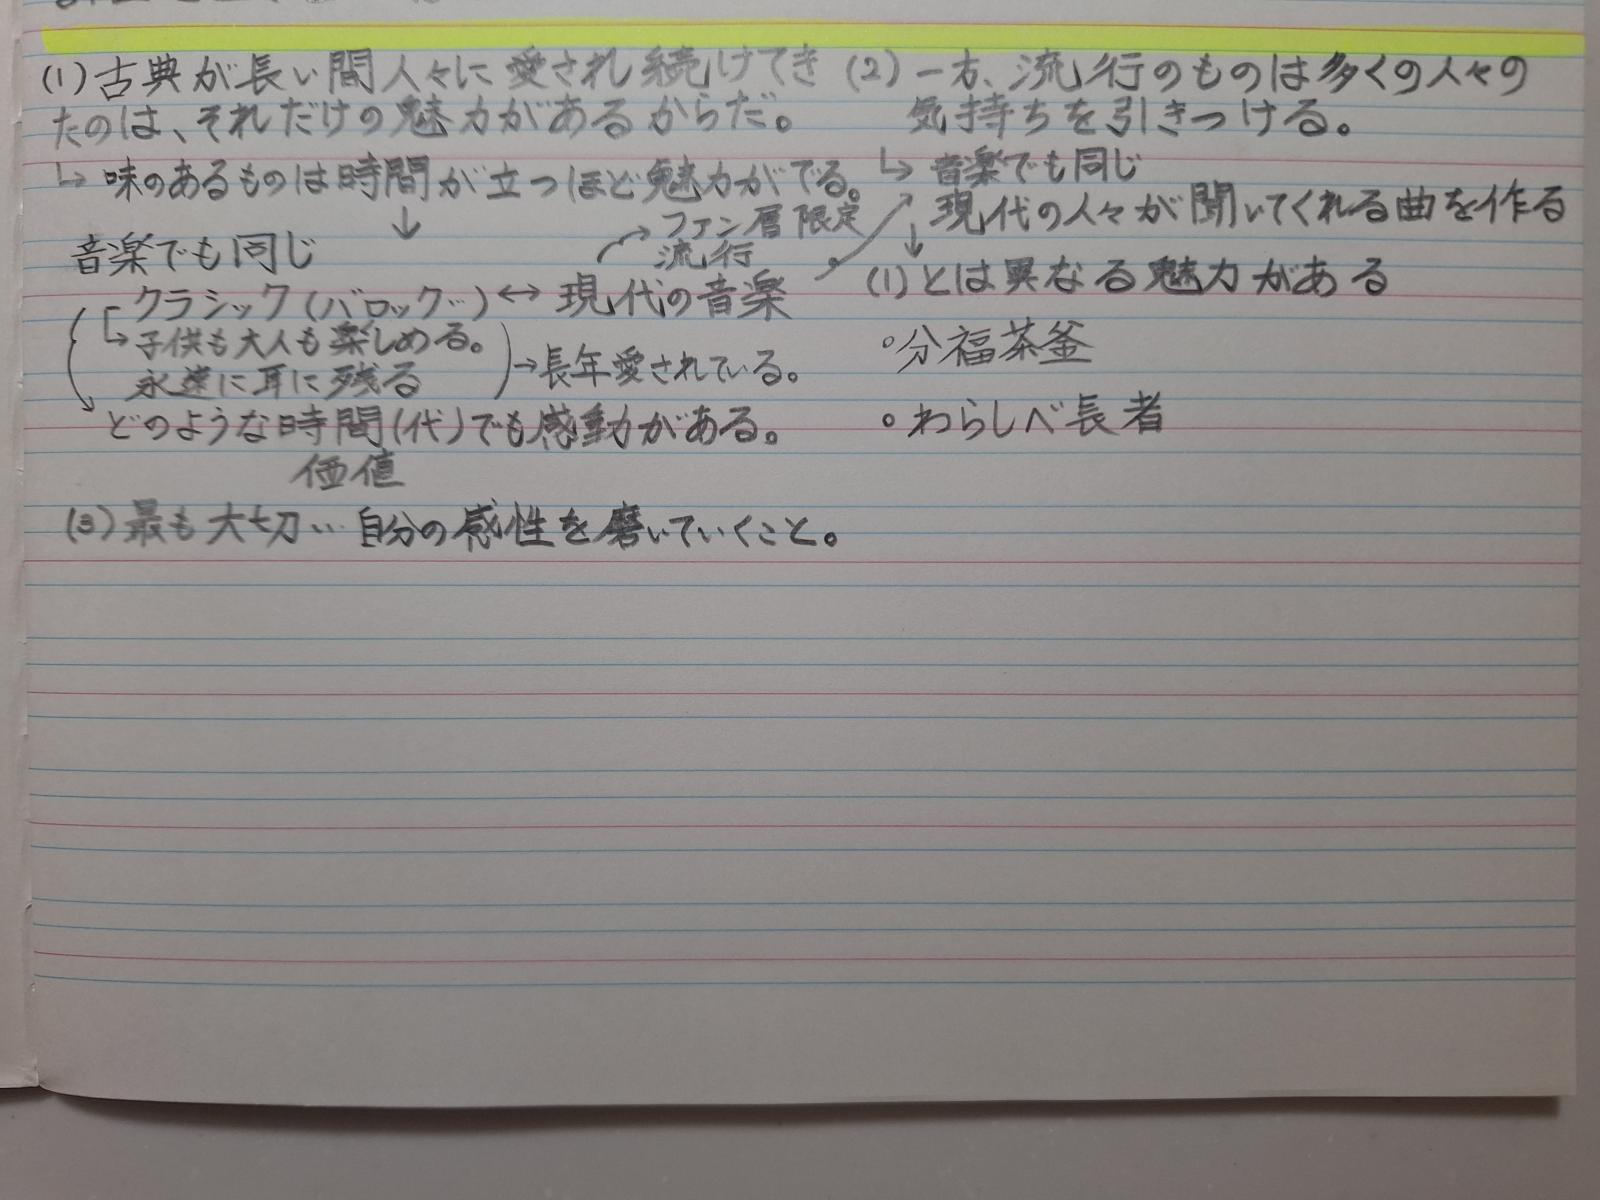 (1)古典が長い間人々に愛され続けてき
たのは、それだけの魅力があるからだ。
↳味のあるものは時間が立つほど魅力がでる。
↓
音楽でも同じ
クラシック(バロック…)↔現代の音楽
→ファン層限定
流行
↳子供も大人も楽しめる。
永遠に耳に残る
→長年愛されている。
どのような時間(代)でも感動がある。
価値
(2)一方、流行のものは多くの人々の
気持ちを引きつける。
↳音楽でも同じ
現代の人々が聞いてくれる曲を作る
↓
(1)とは異なる魅力がある
・分福茶釜
・わらしべ長者
(3)最も大切…自分の感性を磨いていくこと。